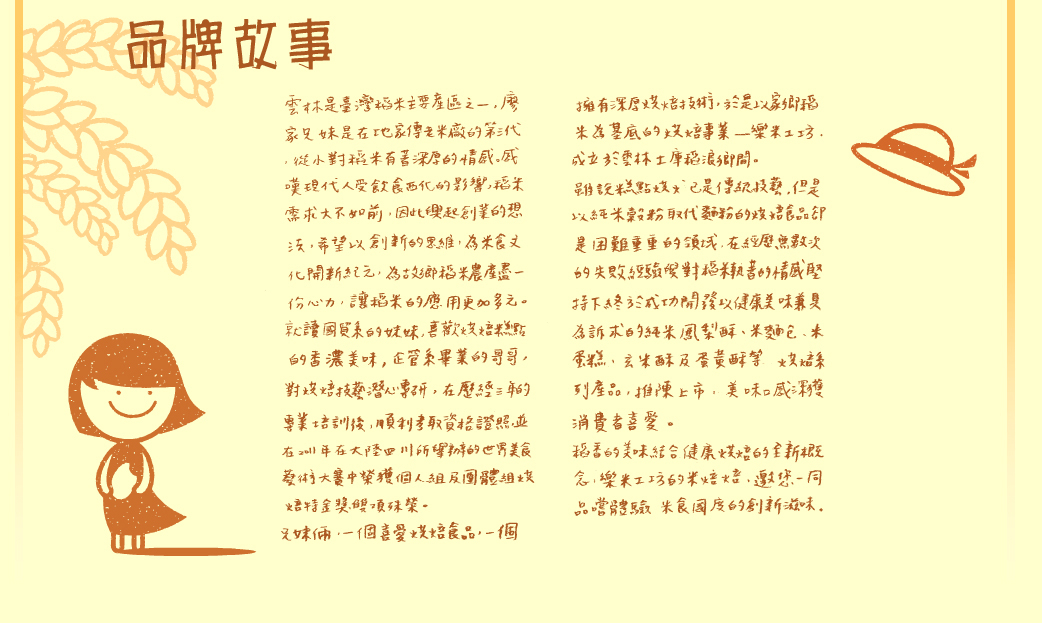 品牌故事
雲林是臺灣稻米主要產區之一，廖
家兄妹是在地家傳老米廠的第三代
，從小對稻米有著深厚的情感。感
嘆現代人受飲食西化的影響，稻米
需求大不如前，因此興起創業的想
法，希望以創新的思維，為米食文
化開新紀元，為故鄉稻米農產盡一
份心力，讓稻米的應用更加多元。
就讀國貿系的妹妹，喜歡烘焙糕點
的香濃美味，企管系畢業的哥哥，
對烘焙技藝潛心專研，在歷經三年的
專業培訓後，順利考取資格證照，並
在2011年在大陸四川所舉辦的世界美食
藝術大賽中榮獲個人組及團體組烘
焙特金獎雙項殊榮。
兄妹倆，一個喜愛烘焙食品，一個
擁有深厚烘焙技術，於是以家鄉稻
米為基底的烘焙事業—樂米工坊，
成立於雲林土庫稻浪鄉間。
雖說糕點烘焙已是傳統技藝，但是
以純米穀粉取代麵粉的烘焙食品卻
是困難重重的領域，在經歷無數次
的失敗經驗與對稻米執著的情感堅
持下終於成功開發以健康美味兼具
為訴求的純米鳳梨酥、米麵包、米
蛋糕、玄米酥及蛋黃酥等 烘焙系
列產品，推陳上市，美味口感深獲
消費者喜愛。
稻香的美味結合健康烘焙的全新概
念，樂米工坊的米焙焙，邀您一同
品嚐體驗 米食國度的創新滋味．